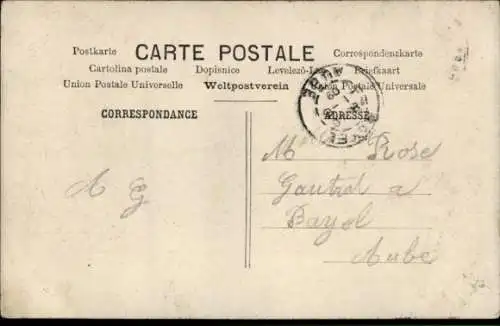 Postkarte CARTE POSTALE Correspondenzkarte
Cartolina postale Dopisnice Levelező-L Briefkaart
Union Postale Universelle Weltpostverein Union Postale Universale
CORRESPONDANCE
ADRESSE
AUBE
M Rose
Gautrel a
Bayel
Aube
A G